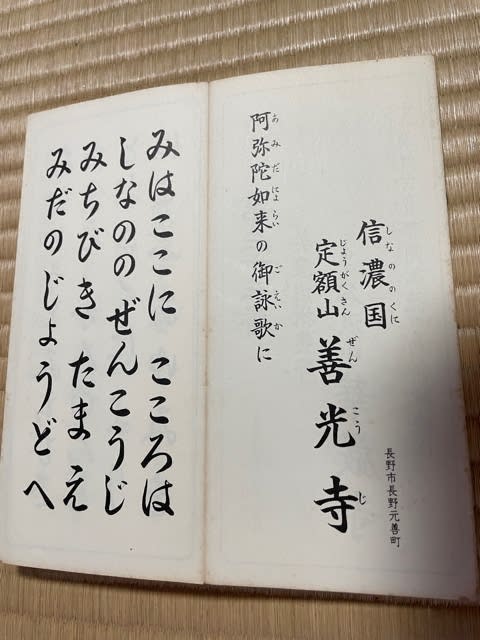 信濃国
しなののくに
定額山
じょうがくさん
善光寺
ぜんこうじ
長野市長野元善町
阿弥陀如来の御詠歌に
あみだにょらい ごえいか
みはここに こころは
しなのの ぜんこうじ
みちびき たまえ
みだのじょうどへ